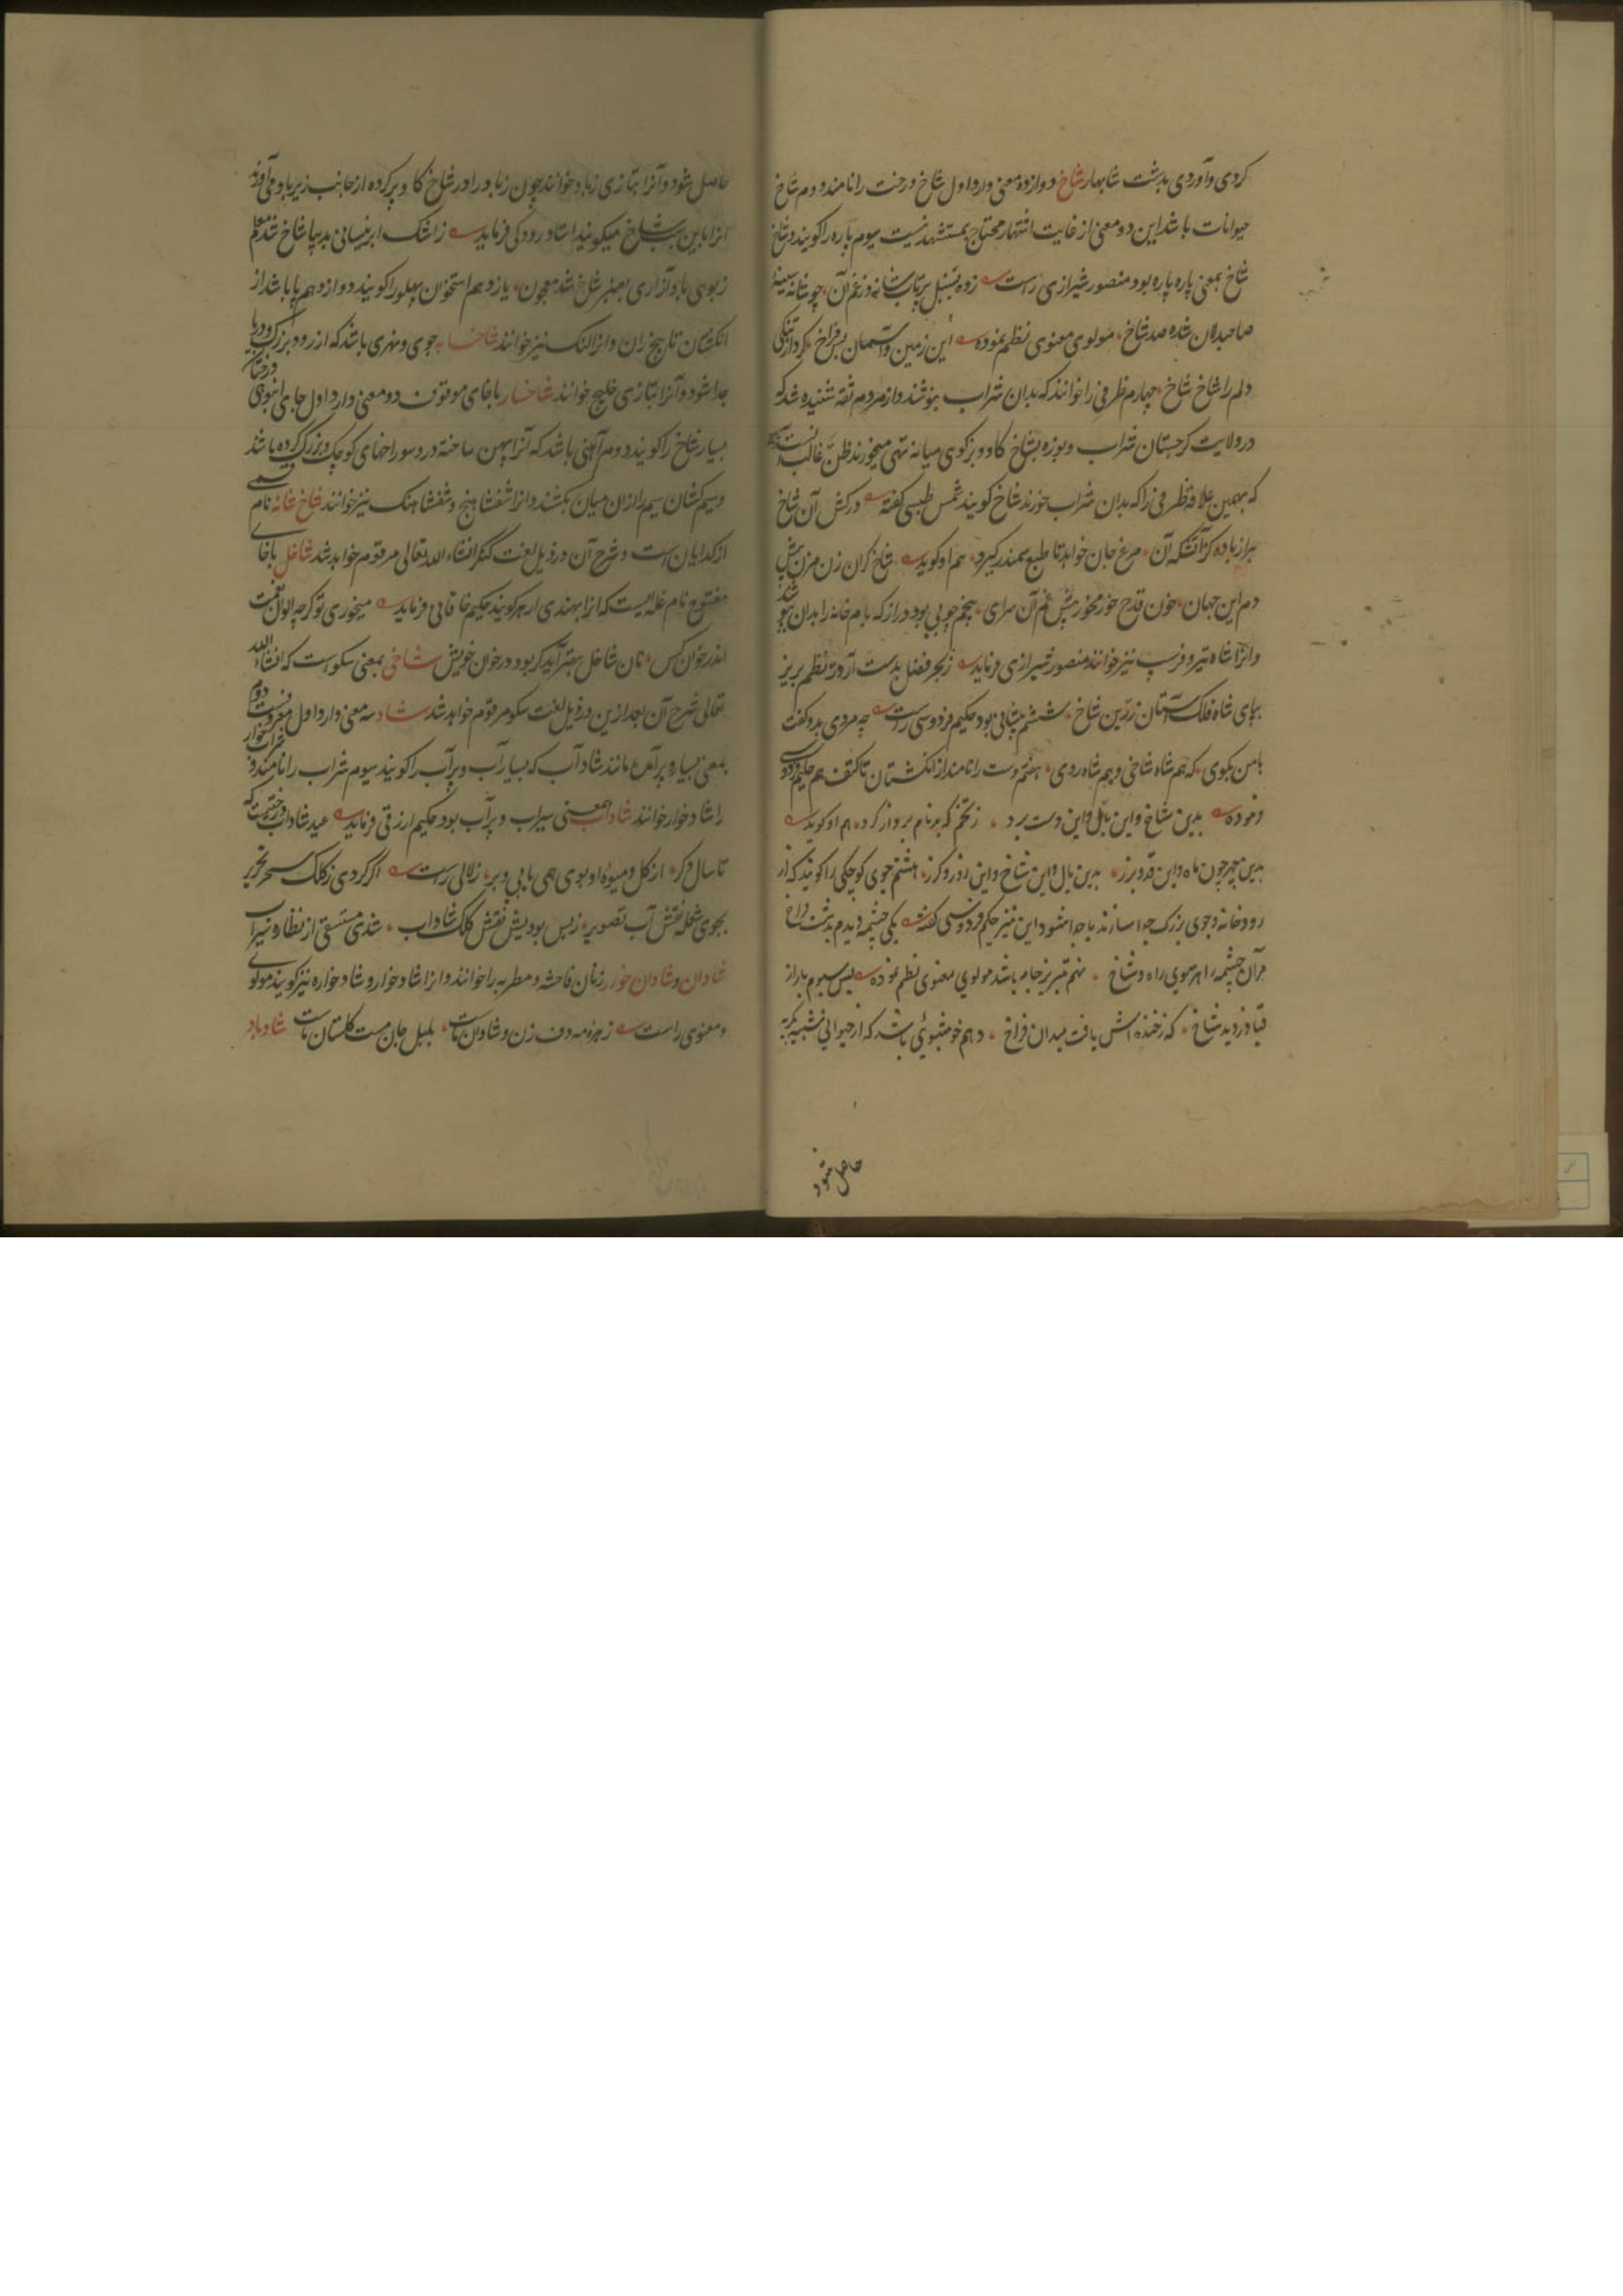 کردی و آوردی بدشت شابهار شاخ دوازده معنی دارد اول شاخ درخت را نامند دوم شاخ
حیوانات باشد این دو معنی از غایت اشتهار محتاج بمستشهد نیست سیوم پاره را گویند و شاخ
شاخ بمعنی پاره پاره بود منصور شیرازی راست زده سنبل بر تاب شانه وز غم آن چو شانه سینهٔ
صاحبدلان شده صد شاخ مولوی معنوی نظم نموده این زمین و آسمان بس فراخ کرد از تنکی
دلم را شاخ شاخ چهارم ظرفی را خوانند که بدان شراب بنوشند و از مردم ثقه شنیده شد که
در ولایت کرجستان شراب و بوزه بشاخ کاو و بز کوی میانه تهی میخورند ظن غالب آنست
که بهمین علاقه ظرفی را که بدان شراب خورند شاخ گویند شمس طبسی گفته درکش آن شاخ
پر از باده کز آتشکه آن مرغ جان خواهد تا طبع سمندر کیرد هم او گوید شاخ کران زن مزن پیش
دم این جهان خون قدح خور مخور پیش غم آن سرای پنجم چوبی بود دراز که بام خانه را بدان پوشند
و انرا شاه تیر و فرسب نیز خوانند منصور شیرازی فرماید زبحر فضل بدست آر در نظم بریز
بپای شاه فلک آستان زرین شاخ ششم پیشانی بود حکیم فردوسی راست چه مردی بدو گفت
با من بکوی که هم شاه شاخی و هم شاه روی هفتم دست را نامند از انکشتان تا کتف هم حکیم فردوسی
فرموده بدین شاخ و این یال و این دست برد ز تخم که نام بردار کرد هم او گوید
بدین چهر چون ماه و این فر و برز بدین یال و این شاخ و این زور و کرز هشتم جوی کوچکی را گویند که از
رودخانه و جوی بزرک جدا سازند یا جدا شود این نیز حکیم فردوسی گفته یکی چشمه دیدم بدشت فراخ
مر آن چشمه را هر سوی راه و شاخ نهم تیریز جامه باشد مولوی معنوی نظم نموده پس سیوم بار از
قبا دزدید شاخ که ز خنده اش یافت میدان فراخ دهم خوشبوئی باشد که از حیوانی شبیه بکربه
حاصل شود
حاصل شود و آنرا بتازی زباد خوانند چون زباد را در شاخ کاو پر کرده از جانب زیرباد می آورند
انرا باین سبب شاخ میگویند استاد رودکی فرماید ز اشک ابر نیسانی بدیبا شاخ شد معلم
ز بوی باد آزاری بعنبر شاخ شد معجون یازدهم استخوان پهلو را گویند دوازدهم پا باشد از
انکشتان تا بیخ ران و انرا لنک نیز خوانند شاخابه جوی و نهری باشد که از رود بزرک و دریا
جدا شود و آنرا بتازی خلیج خوانند شاخسار با خای موقوف دو معنی دارد اول جای انبوهی درختان
بسیار شاخ را گویند دوم آهنی باشد که آنرا پهن ساخته در و سوراخهای کوچک و بزرک کرده باشند
و سیم کشان سیم را از ان میان بکشند و انرا شفشاهنج و شفشاهنک نیز خوانند شاخ شانه نام قسمی
از کدایان است و شرح آن در ذیل لغت کنکر انشاء الله تعالی مرقوم خواهد شد شاخل با خای
مفتوح نام غله ایست که انرا بهندی ارهر گویند حکیم خاقانی فرماید میخوری تو کرچه الوان نعمت
اندر خوان کس نان شاخل بهتر آید کر بود در خوان خویش شاخی بمعنی سکو است که انشاء الله
تعالی شرح آن بعد ازین در ذیل لغت سکو مرقوم خواهد شد شاد سه معنی دارد اول معروفست دوم
بمعنی بسیار و پر آمده مانند شادآب که بسیار آب و پر آب را گویند سیوم شراب را نامند و شرابخوار
را شادخوار خوانند شاداب بمعنی سیراب و پر آب بود حکیم ارزقی فرماید عید شاداب درختیست که
تا سال دکر از کل و میوهٔ او بوی همی یابی و بر زلالی راست اگر کردی ز کلک سحر تحریر
بجوی شعله نقش آب تصویر ز بس بودیش نقش کلک شاداب شدی مستسقی از نظاره سیراب
شادان و شادان خوار زنان فاحشه و مطربه را خوانند و انرا شادخوار و شادخواره نیز گویند مولوی
معنوی راست زهره مه دف زن و شادان ماست بلبل جان مست کلستان ماست شادباد